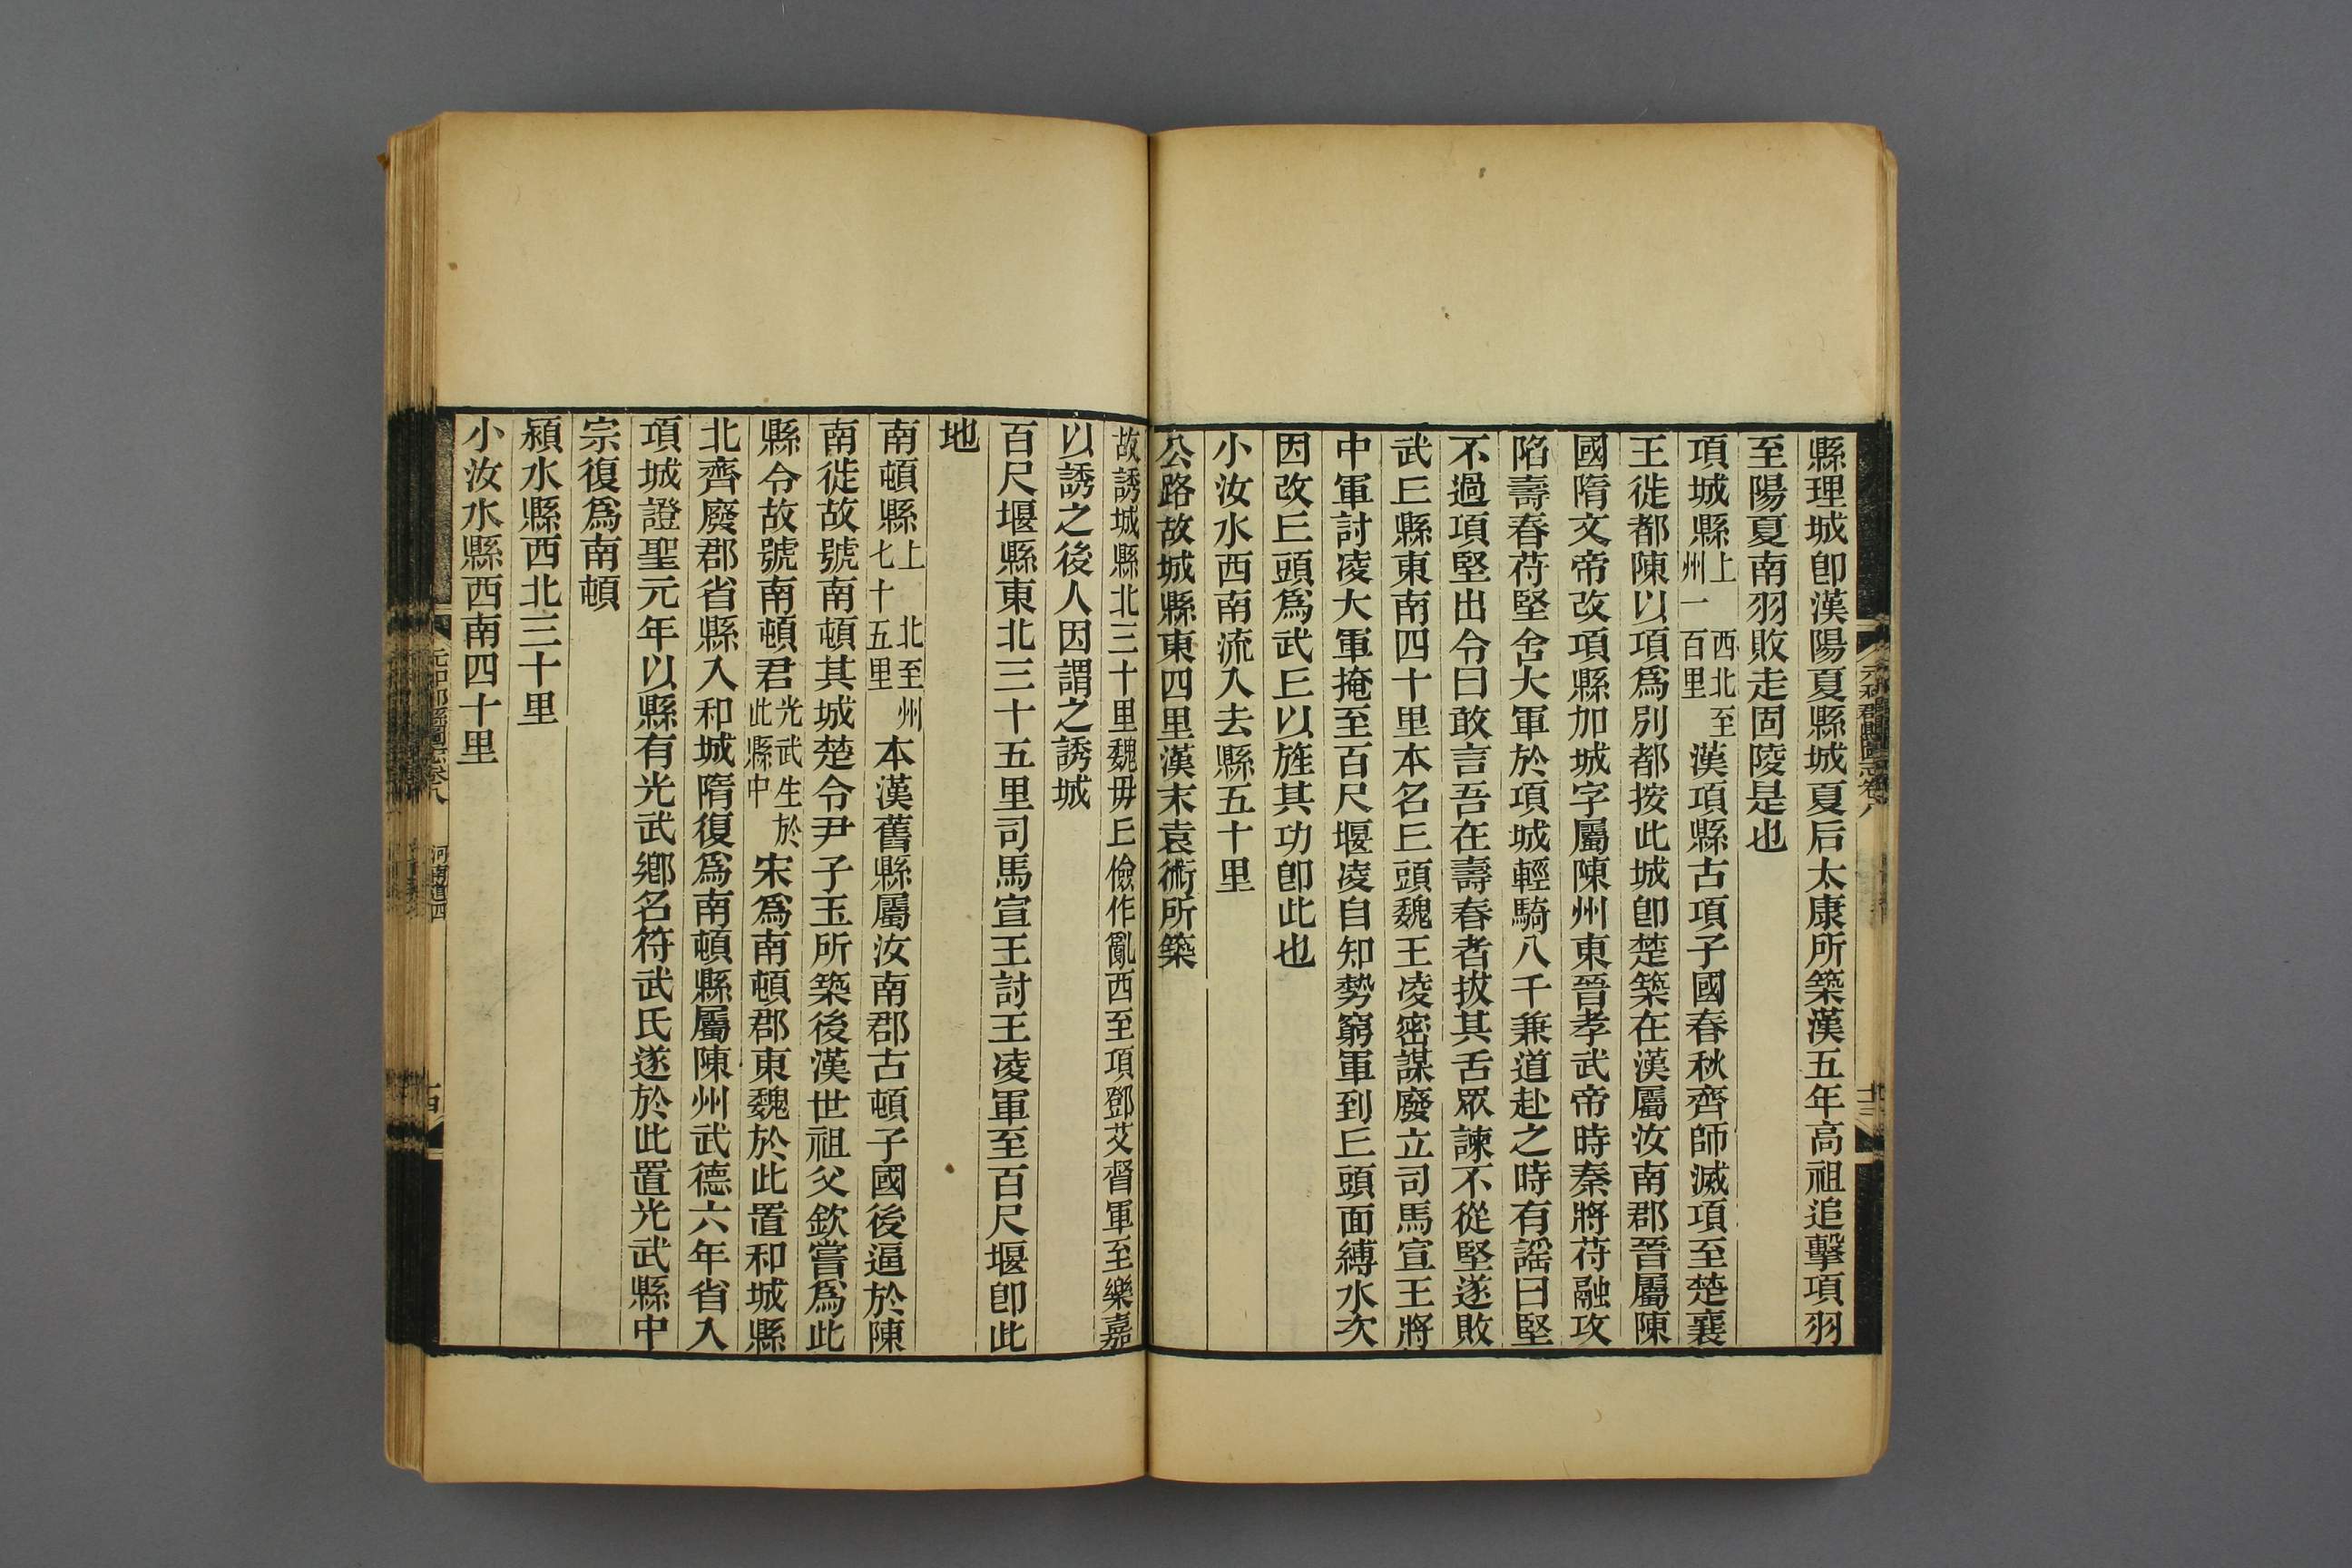 縣理城卽漢陽夏縣城夏后太康所築漢五年高祖追擊項羽
至陽夏南羽敗走固陵是也
項城縣上 西北至州一百里漢項縣古項子國春秋齊師滅項至楚襄
王徙都陳以項爲別都按此城卽楚築在漢屬汝南郡晉屬陳
國隋文帝改項縣加城字屬陳州東晉孝武帝時秦將苻融攻
陷壽春苻堅舍大軍於項城輕騎八千兼道赴之時有謡曰堅
不過項堅出令曰敢言吾在壽春者拔其舌眾諫不從堅遂敗
武𠀌縣東南四十里本名𠀌頭魏王凌密謀廢立司馬宣王將
中軍討凌大軍掩至百尺堰凌自知勢窮軍到𠀌頭面縛水次
因改𠀌頭爲武𠀌以旌其功卽此也
小汝水西南流入去縣五十里
公路故城縣東四里漢末袁術所築
故誘城縣北三十里魏毋𠀌儉作亂西至項鄧艾督軍至樂嘉
以誘之後人因謂之誘城
百尺堰縣東北三十五里司馬宣王討王凌軍至百尺堰卽此
地
南頓縣上 北至州七十五里本漢舊縣屬汝南郡古頓子國後逼於陳
南徙故號南頓其城楚令尹子玉所築後漢世祖父欽嘗爲此
縣令故號南頓君光武生於此縣中宋爲南頓郡東魏於此置和城縣
北齊廢郡省縣入和城隋復爲南頓縣屬陳州武德六年省入
項城證聖元年以縣有光武鄉名符武氏遂於此置光武縣中
宗復爲南頓
潁水縣西北三十里
小汝水縣西南四十里
元和郡縣圖志卷八
河南道四
十四